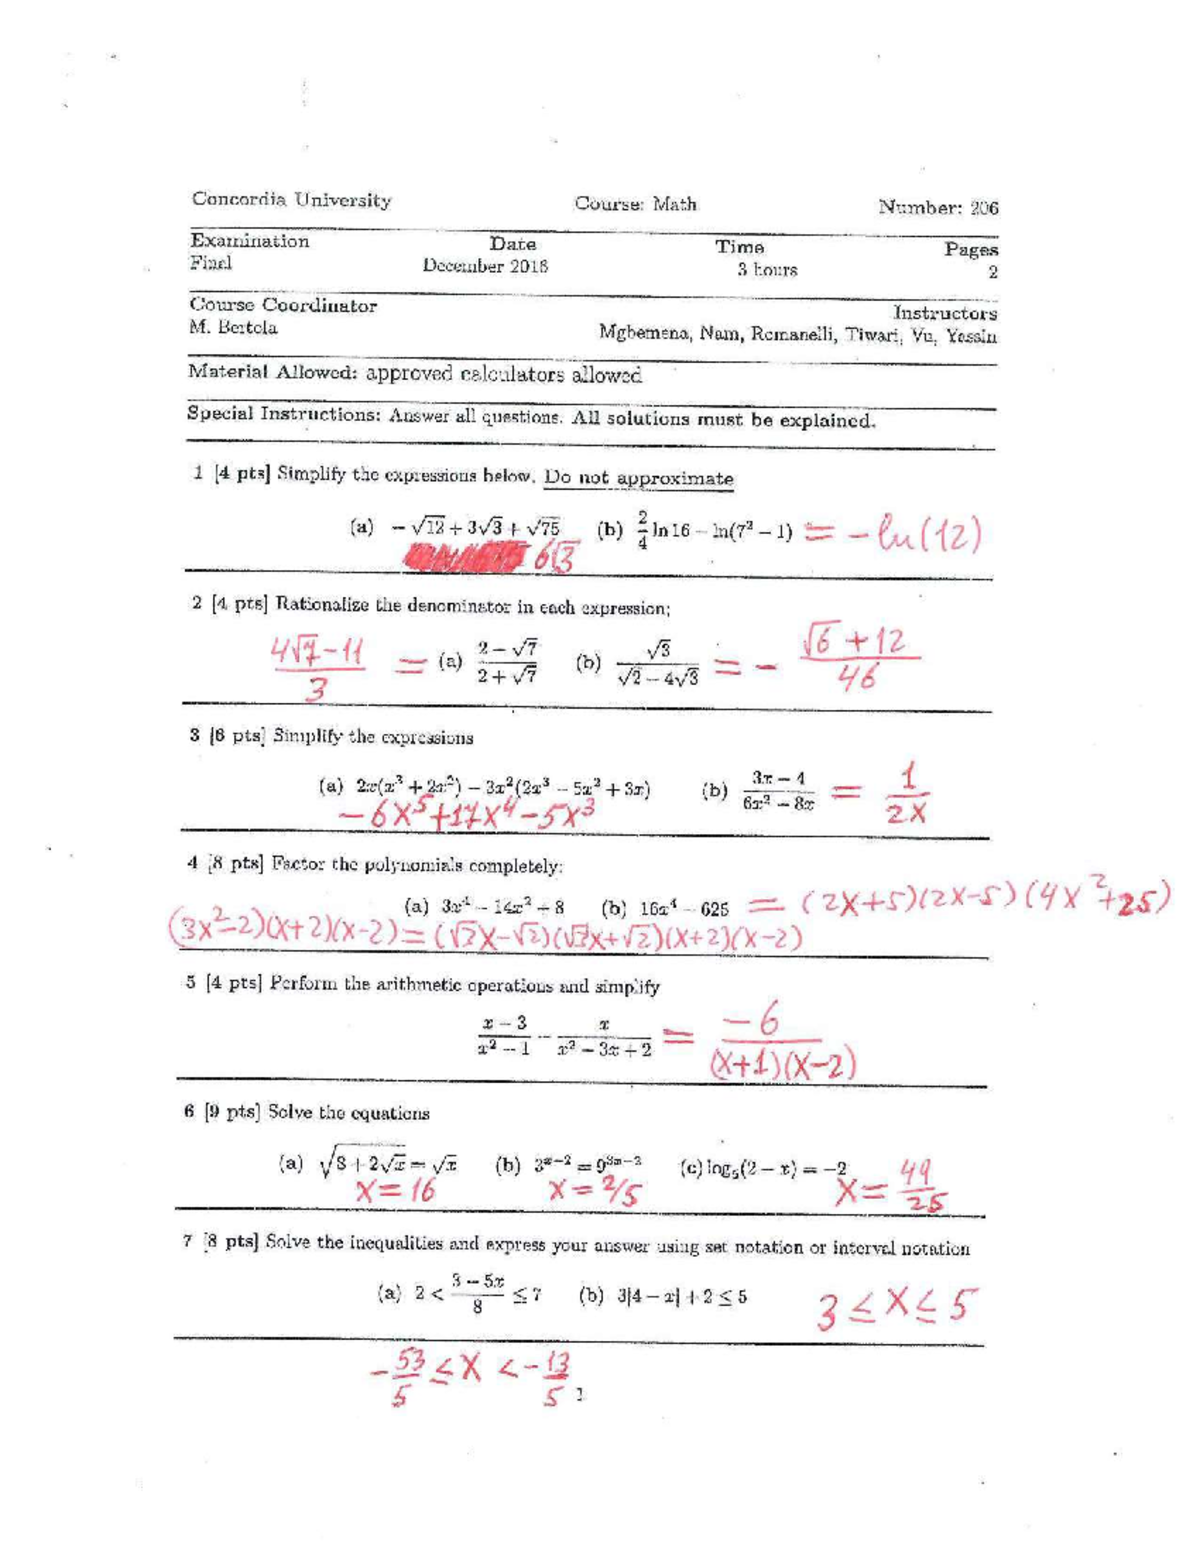 Concordia University Course: Math Number: 206
Examination Date Time Pages
Final December 2016 3 hours 2
Course Coordinator Instructors
M. Bertola Mgbemena, Nam, Romanelli, Tiwari, Vu, Yassin
Material Allowed: approved calculators allowed
Special Instructions: Answer all questions. All solutions must be explained.
1 [4 pts] Simplify the expressions below. Do not approximate
(a) −√12 + 3√3 + √75 (b) 2/4 ln 16 − ln(7² − 1) = −ln(12)
6√3
2 [4 pts] Rationalize the denominator in each expression;
(4√7−11)/3 = (a) (2 − √7)/(2 + √7) (b) √3/(√2 − 4√3) = − (√6+12)/46
3 [6 pts] Simplify the expressions
(a) 2x(x³ + 2x²) − 3x²(2x³ − 5x² + 3x) (b) (3x − 4)/(6x² − 8x) = 1/2X
−6X⁵+17X⁴−5X³
4 [8 pts] Factor the polynomials completely:
(a) 3x⁴ − 14x² + 8 (b) 16x⁴ − 625 = (2X+5)(2X−5)(4X²+25)
(3X²−2)(X+2)(X−2) = (√3X−√2)(√3X+√2)(X+2)(X−2)
5 [4 pts] Perform the arithmetic operations and simplify
(x − 3)/(x² − 1) − x/(x² − 3x + 2) = −6/((X+1)(X−2))
6 [9 pts] Solve the equations
(a) √(8 + 2√x) = √x (b) 3ˣ⁻² = 9³ˣ⁻² (c) log₅(2 − x) = −2
X=16 X=2/5 X=49/25
7 [8 pts] Solve the inequalities and express your answer using set notation or interval notation
(a) 2 < (3 − 5x)/8 ≤ 7 (b) 3|4 − x| + 2 ≤ 5 3≤X≤5
−53/5 ≤ X < −13/5
1